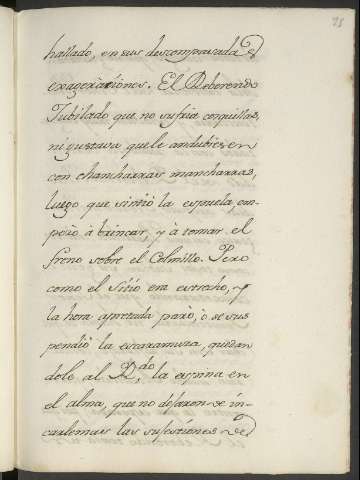 25
hallado, en sus descompasadas
exageraciones. El Reberendo
Jubilado que no sufria cosquillas,
ni gustava que le andubiesen
con chancharras mancharras,
luego que sintió la espuela, em-
pezò à brincar, y à tomar el
freno sobre el Colmillo. Pero
como el Sitio era estrecho, y
la hora apretada parò, ò se sus
pendiò la escaramuza, quedan
dole al R.do la espina en
el alma, que no dejaron de in-
cularle las sugestiones de